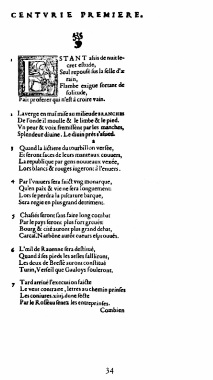 CENTVRIE PREMIERE.
1 ESTANT assis de nuit secret estude,
Seul repousé sus la selle d'ærain,
Flambe exigue sortant de solitude,
Fait proferer qui n'est à croire vain.
2 La verge en mai mise au milieu de BRANCHES
De l'onde il moulle & le limbe & le pied.
Vn peur & voix fremissent par les manches,
Splendeur diuine. Le diuin pres s'assied.
3 Quand la lictiere du tourbillon versée,
Et seront faces de leurs manteaux couuers,
La republique par gens nouueaux vexée,
Lors blancs & rouges iugeront à l'enuers.
4 Par l'vniuers sera faict vng monarque,
Qu'en paix & vie ne sera longuement:
Lors se perdra la piscature barque,
Sera regie en plus grand detriment.
5 Chassés seront sans faire long combat
Par le pays seront plus fort greués:
Bourg & cité auront plus grand debat,
Carcas. Narbonne auront cueurs esprouués.
6 L'œil de Rauenne sera destitué,
Quand à ses pieds les aelles falliront,
Les deux de Bresse auront constitué
Turin, Verseil que Gauloys fouleront.
7 Tard arriué l'execution faicte
Le vent contraire, letres au chemin prinses
Les coniures xiiij. dune secte
Par le Rosseau senez les entreprinses.
Combien
34